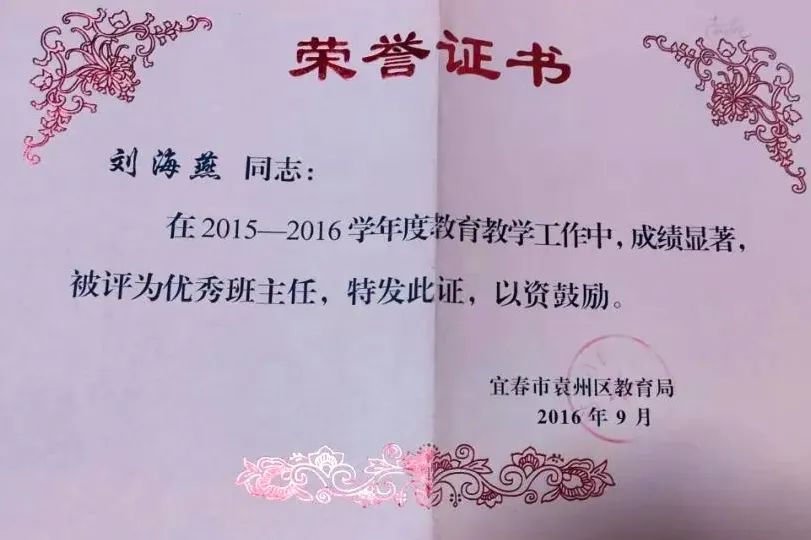 荣誉证书
刘海燕 同志：
在2015—2016学年度教育教学工作中，成绩显著，
被评为优秀班主任，特发此证，以资鼓励。
宜春市袁州区教育局
2016年9月